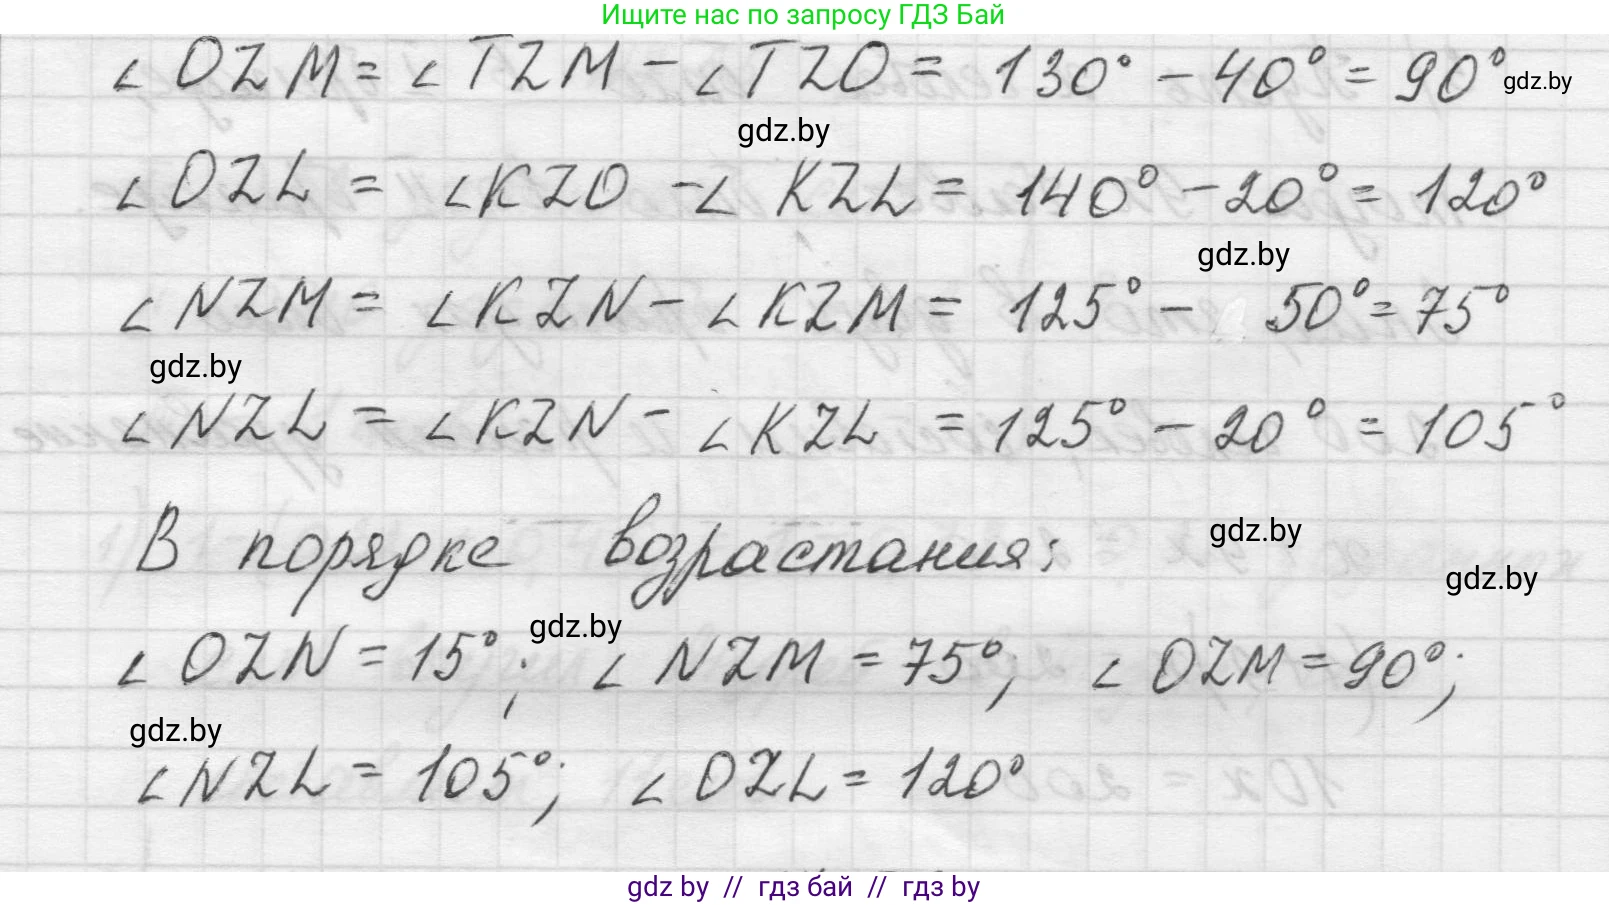 Ищите нас по запросу ГДЗ Бай
∠OZM = ∠TZM - ∠TZO = 130° - 40° = 90°
gdz.by
gdz.by
∠OZL = ∠KZO - ∠KZL = 140° - 20° = 120°
gdz.by
∠NZM = ∠KZN - ∠KZM = 125° - 50° = 75°
gdz.by
∠NZL = ∠KZN - ∠KZL = 125° - 20° = 105°
В порядке возрастания:
gdz.by
gdz.by
gdz.by
∠OZN = 15°; ∠NZM = 75°; ∠OZM = 90°;
gdz.by
∠NZL = 105°; ∠OZL = 120°
gdz by // гдз бай // гдз by